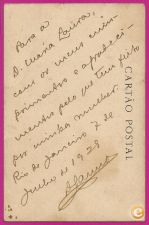 Para a
D. Maria Laura,
com os meus cum-
primentos e agradeci-
mentos pelo que tem feito
por minha mulher.
Rio de Janeiro 7 de
Julho de 1928
CARTÃO POSTAL